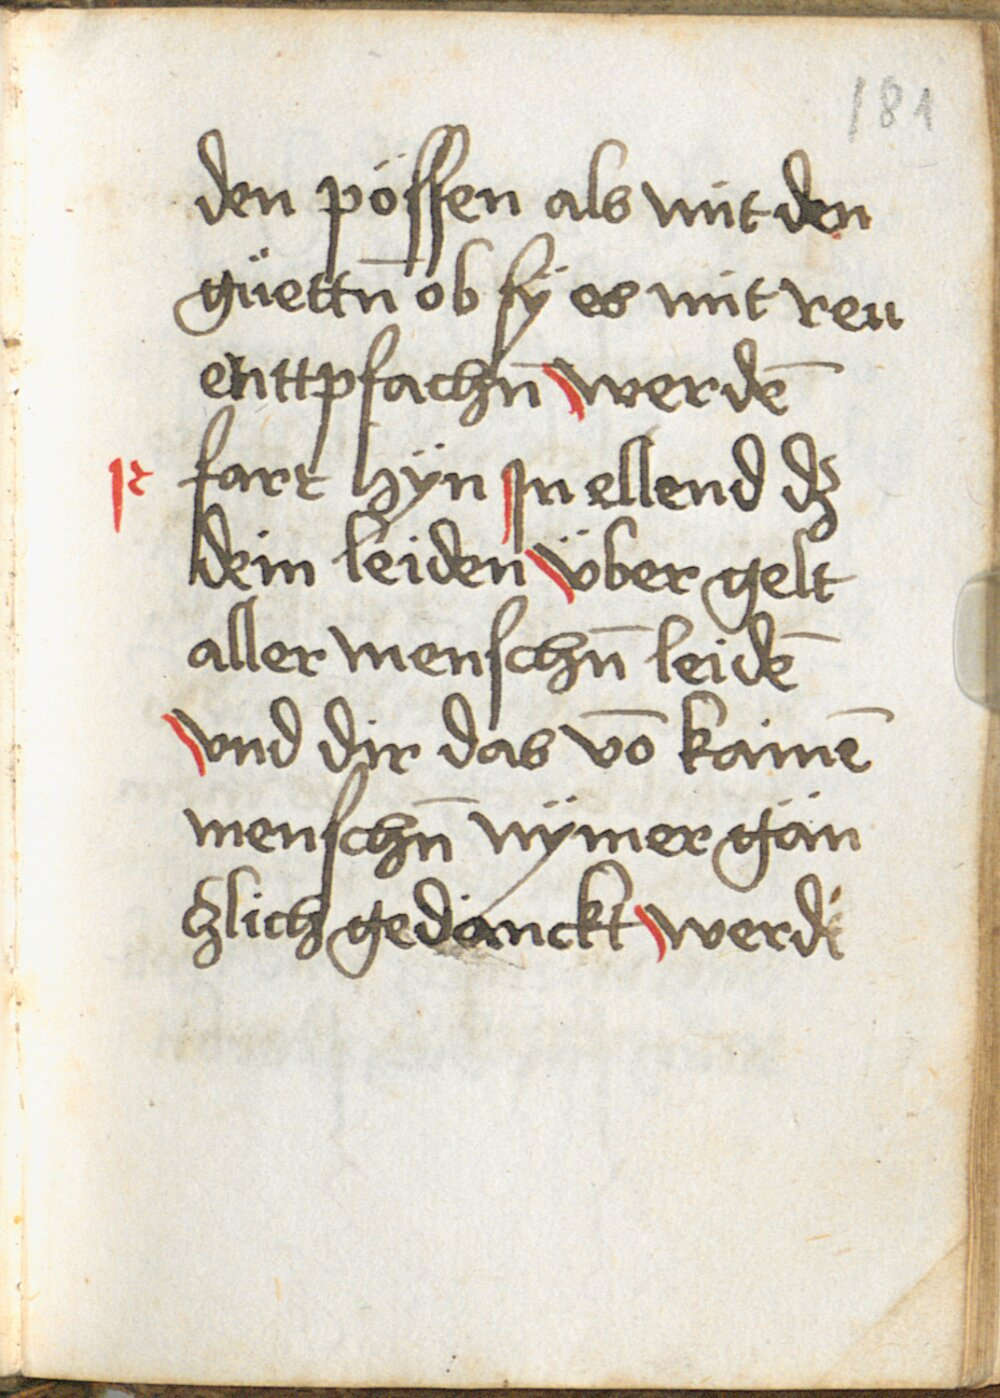 181
den pössen als mit den
güettn̄ ob sÿ es mit reu
enttpfachn̄ werdē
fart hÿn Jn ellend dz
dein leiden über gelt
aller menschn̄ leidē
vnd dir das vō kainē
menschn̄ nÿmer gän
czlich gedanckt werd